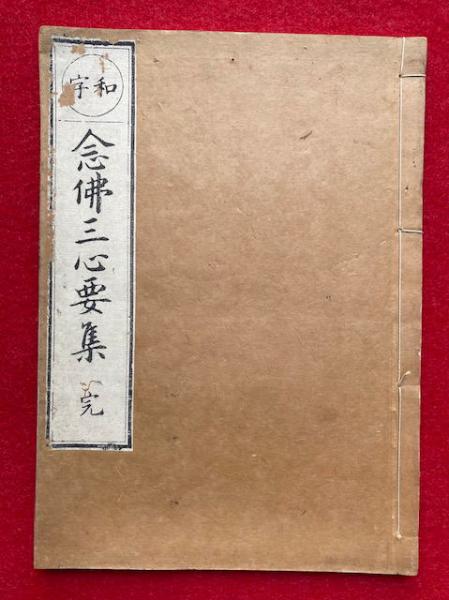 和字
念佛三心要集
完